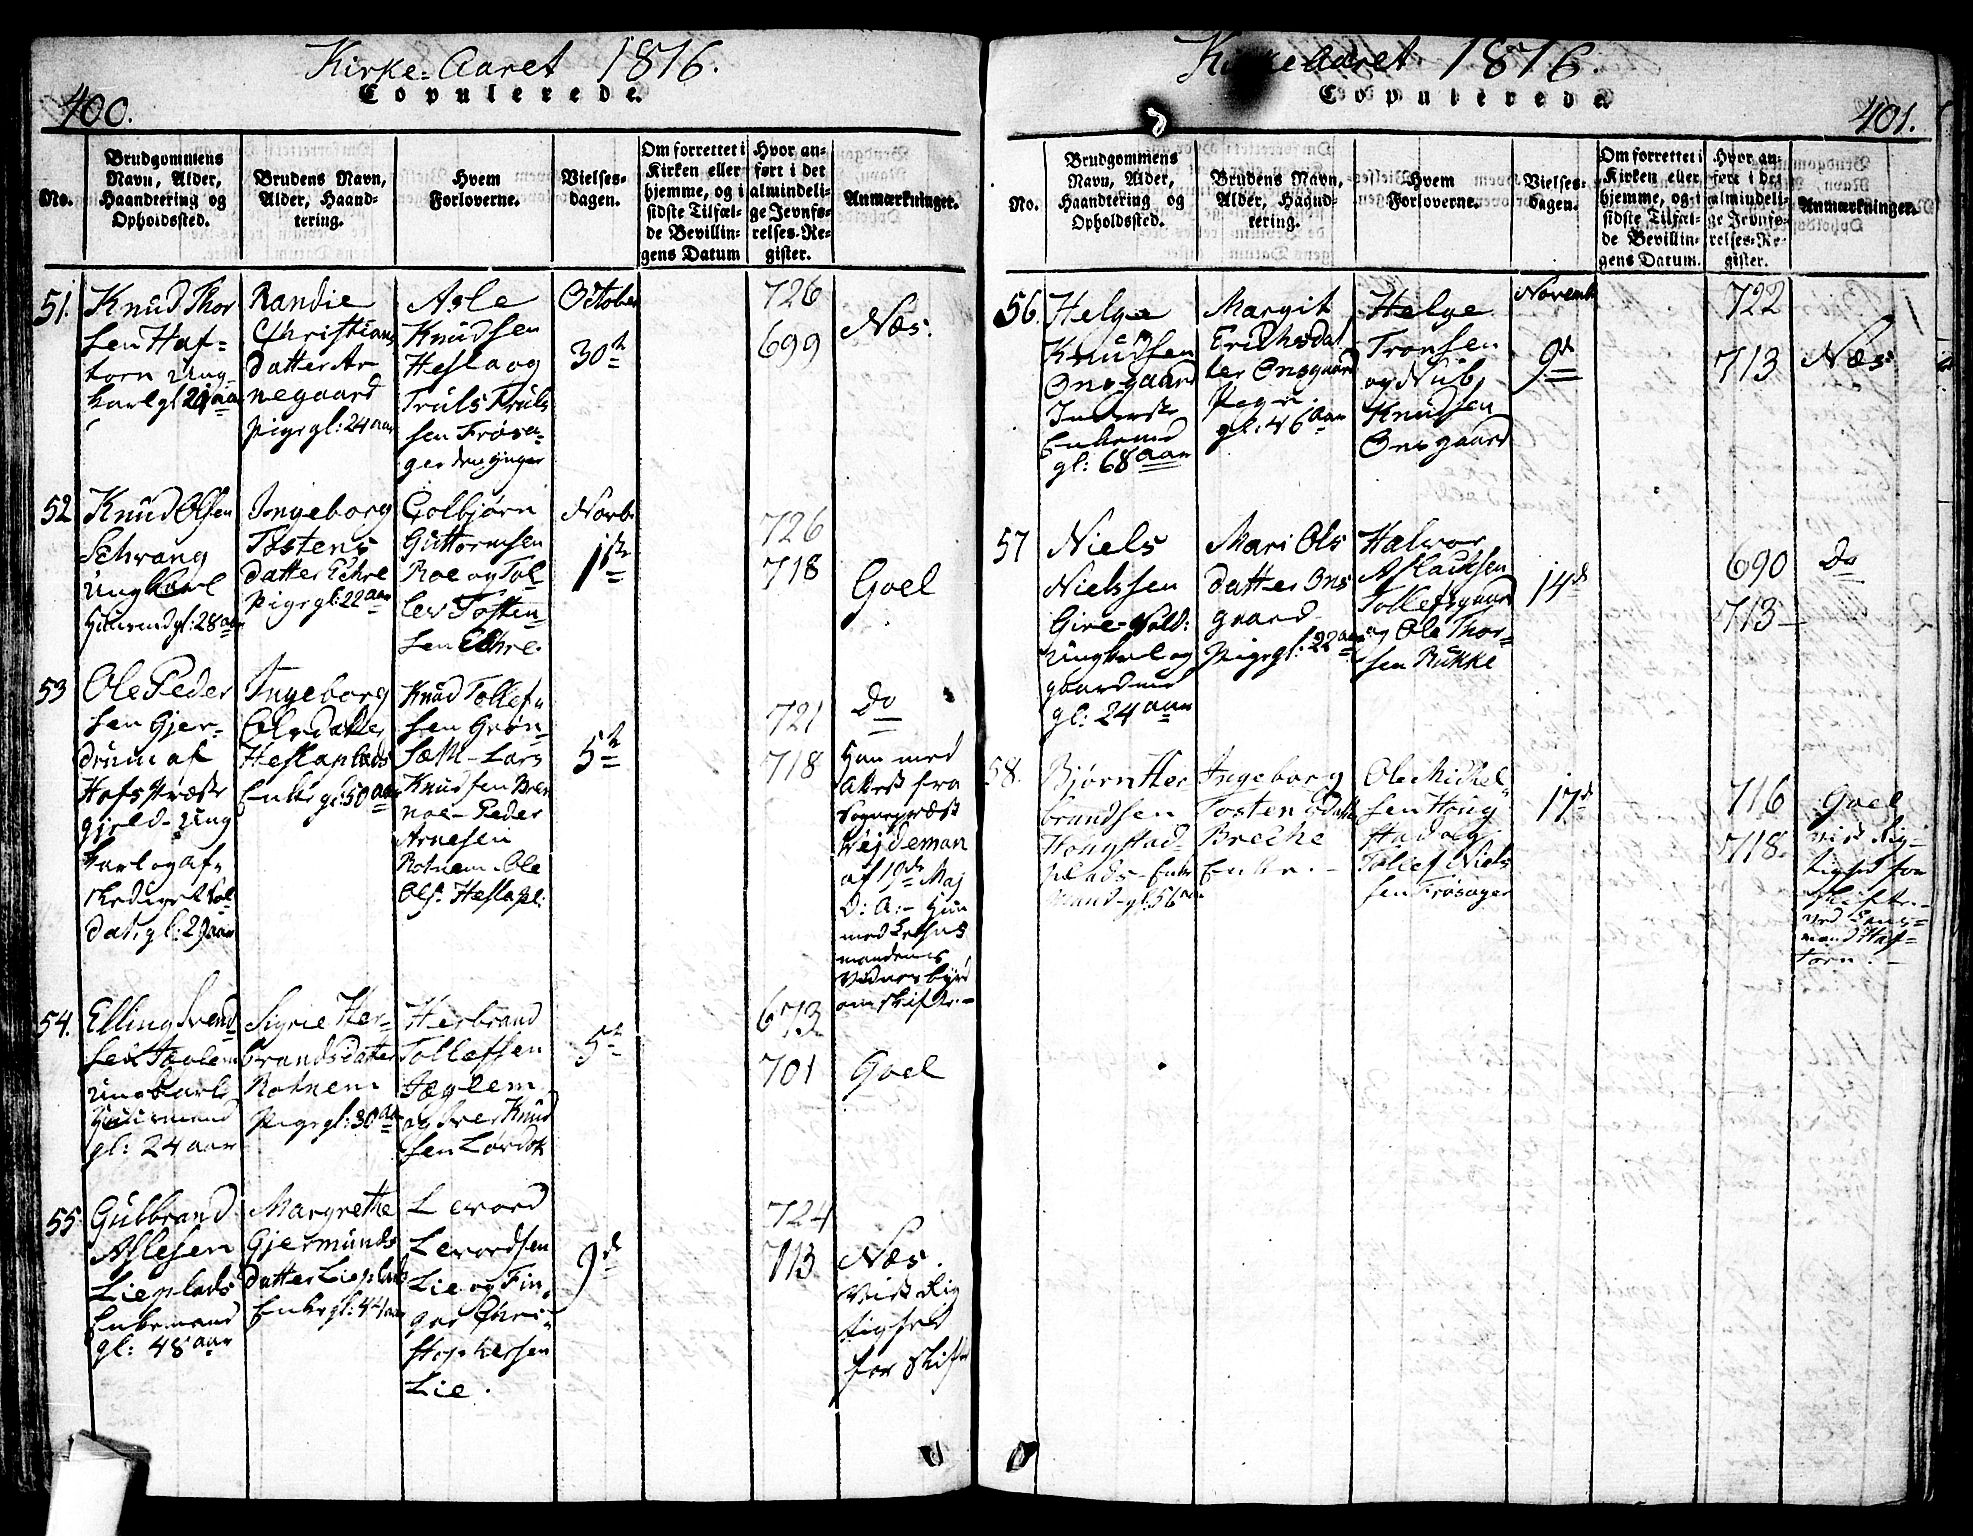 Kirke-Aaret 1816.
400.
Copulerede.
No.
Brudgommens
Navn, Alder,
Haandtering og
Opholdssted.
Brudens Navn,
Alder, Haand-
tering.
Hvem
Forloverne.
Vielses-
dagen.
Om forrettet i
Kirken eller
hjemme, og i
sidste Tilfæl-
de Bevillin-
gens Datum
Hvor an-
ført i det
almindeli-
ge Jevnfø-
relses-Re-
gister.
Anmærkninger.
51.
Knud Thor
sen Haf-
torn Ung-
karl gl
Randie
Christians
datter Ar
negaard
Pige gl: 24 aar
Asle
Knudsen
Hesla og
Truls Truls
sen Frøsa-
ger den yngre
October
30te
726
699
Næs.
52
Knud Olsen
Ungkarl
Huusmand gl: 28 aar
Ingeborg
Tostens
datter Echre
Pige gl: 22 aar
Golbjørn
Guttormsen
Roe og Tol
lev Tosten-
sen Echre.
Novb.
1ste
726
718
Goel
53
Ole Peder
sen Gjer-
drum af
Hofs Præste
gjeld - Ung
karl og af-
skediget Sol
dat gl: 29 aar
Ingeborg
datter
Heslaplads
Enke gl: 50 aar
Knud Tollef-
sen Grøn-
Sæth - Lars
Knudsen Bren
noe - Peder
Arnesen
Rotnem - Ole
Ols: Heslapl:
5te
721
718
Do
Han med
Attest fra
Sognepræst
Wejdeman
af 19de Maj
D: A: - Hun
med Lehns
mandens
om Skifte. -
54.
Elling Svend
sen
Ungkarl
Huusmand
gl: 24 aar
Sigrie Her-
brandsdatter
Rotnem
Pige gl: 30 aar
Herbrand
Tollefsen
Hæglem
og Iver Knud
sen Lordok
5te
673
701
Goel
55
Gulbrand
Aslesen
Lieplads
Enkemand
gl: 48 aar
Margrethe
Gjermunds
datter Lieplads
Enke gl: 44 aar
Levord
Levordsen
Lie og Fin,
gar Chri-
stophersen
Lie.
9de
724
713
Næs.
Vist Rig
tighed
for Skifte
Kirke Aaret 1816.
401.
Copulerede
No.
Brudgommens
Navn, Alder,
Haandtering og
Opholdssted.
Brudens Navn,
Alder, Haand-
tering.
Hvem
Forloverne.
Vielses-
dagen.
Om forrettet i
Kirken eller
hjemme, og i
sidste Tilfæl-
de Bevillin-
gens Datum.
Hvor an-
ført i det
almindeli-
ge Jevnfø-
relses-Re-
gister.
Anmærkninger.
56.
Helge
Knudsen
Onsgaard
Inderste
Enkemd
gl: 68 aar
Margit
Erichsdat
ter Onsgaard
Pige.
gl: 46 aar
Helge
Tronsen
og Nub
Knudsen
Onsgaard
Novemb
9de
722
713
Næs
57
Niels
Nielssen
Ungkarl og
gaardmd
gl: 24 aar
Mari Ols
datter Ons
gaard
Pige gl: 22 aar
Halvor
Aslachsen
Tollefsgaard
og Ole Thor-
sen Rukke
14de
690
713
Do
58.
Bjørn Her
brandsen
Hougstad-
plads - Enke
mand - gl: 56 aar
Ingeborg
Tostensdatter
Breche
Enke. -
Ole Michel-
sen Houg
stad og
Tollef Niels
sen Frøsager
17de
716
718.
Goel
vist Rig-
tighed for
Skifte
ved Lens-
mand Haf-
torn. -